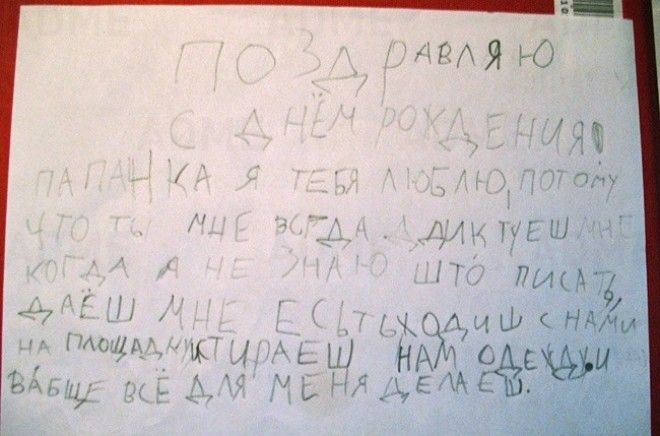 ПОЗДРАВЛЯЮ
С ДНЁМ РОЖДЕНИЯ
ПАПАНКА Я ТЕБЯ ЛЮБЛЮ, ПОТОМУ
ЧТО ТЫ МНЕ ВСЕГДА ДИКТУЕШ МНЕ
КОГДА Я НЕ ЗНАЮ ШТО ПИСАТЬ,
ДАЁШ МНЕ ЕСЬТЬ ХОДИШ С НАМИ
НА ПЛОЩАДКУ СТИРАЕШ НАМ ОДЕЖДУ. И
ВАБЩЕ ВСЁ ДЛЯ МЕНЯ ДЕЛАЕШ.